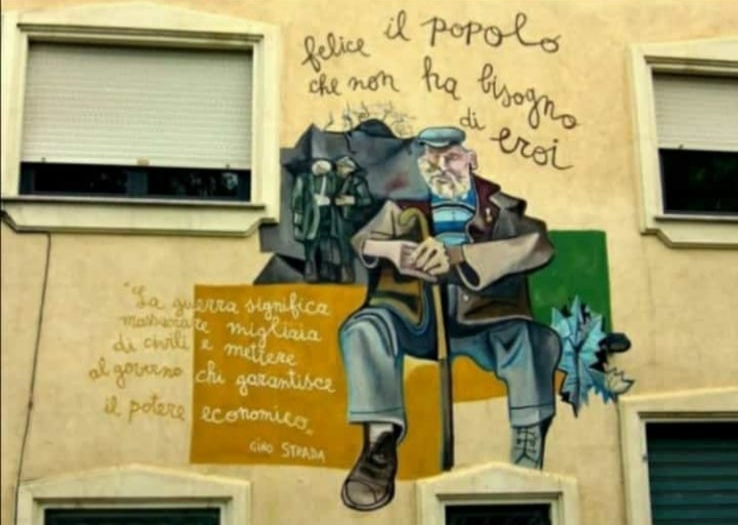 felice il popolo
che non ha bisogno
di eroi
"La guerra significa
massacrare migliaia
di civili e mettere
al governo chi garantisce
il potere economico"
GINO STRADA